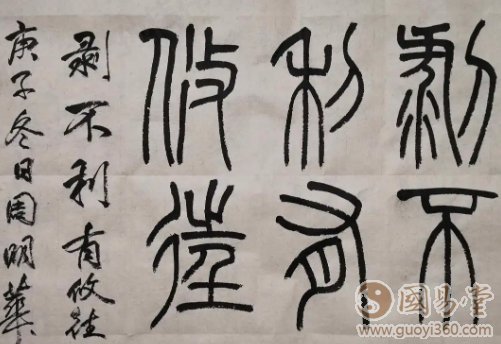 剥不
利有
攸往
剥不利有攸往
庚子冬日周明华
國易堂
www.guoyi360.com